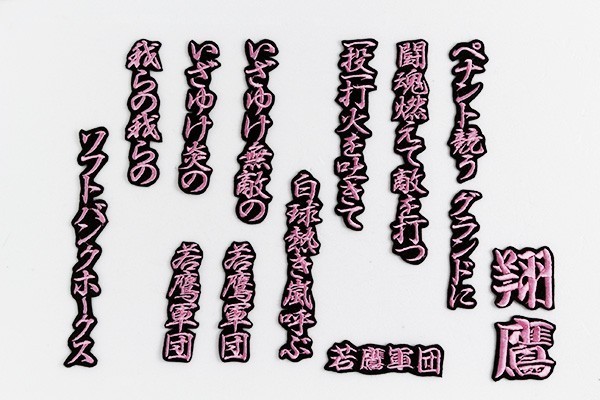 ペナント競う
グランドに
闘魂燃えて敵を打つ
一投一打火を吐きて
白球熱き嵐呼ぶ
いざゆけ無敵の
若鷹軍団
いざゆけ炎の
若鷹軍団
我らの我らの
ソフトバンクホークス
翔
鷹
若鷹軍団